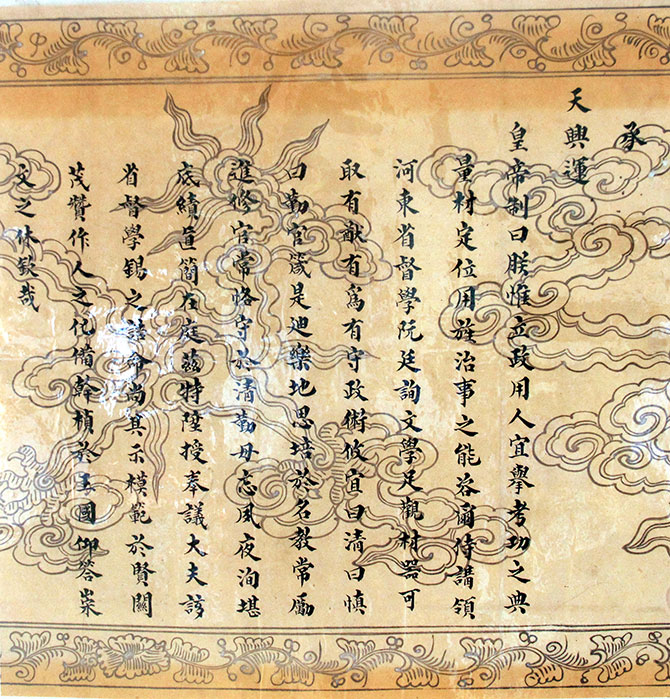 承
天興運
皇帝制曰朕惟立政用人宜擧考功之典
量材定位用旌治事之能咨爾侍講領
河東省督學阮廷詢文學足觀材器可
取有猷有爲有守政術攸宜曰清曰慎
曰勤官箴是迪樂地思培於名教常勵
進修官常恪守於清勤毋忘夙夜洵堪
底績簡在庭茲特陞授奉議大夫該
省督學錫之誥命尚其示模範於賢關
茂贊作人之化備幹楨於王國仰答崇
文之休欽哉